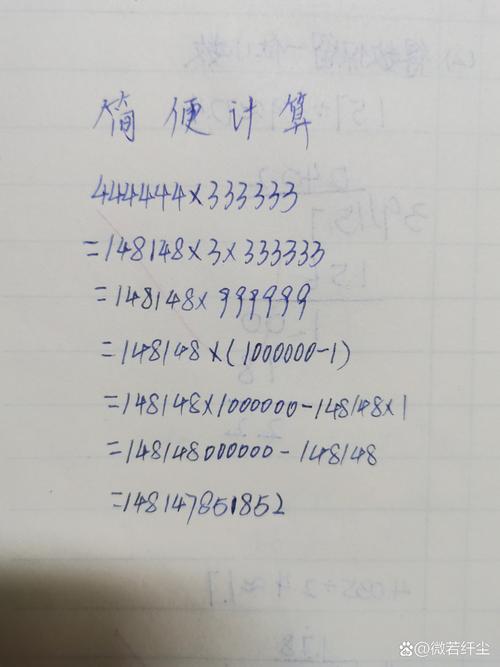 简便计算
444444×333333
=148148×3×333333
=148148×999999
=148148×(1000000-1)
=148148×1000000-148148×1
=148148000000-148148
=148147851852
百家号/微若纤尘